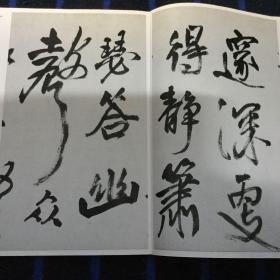 邃深处
得静箫
瑟答幽
声众